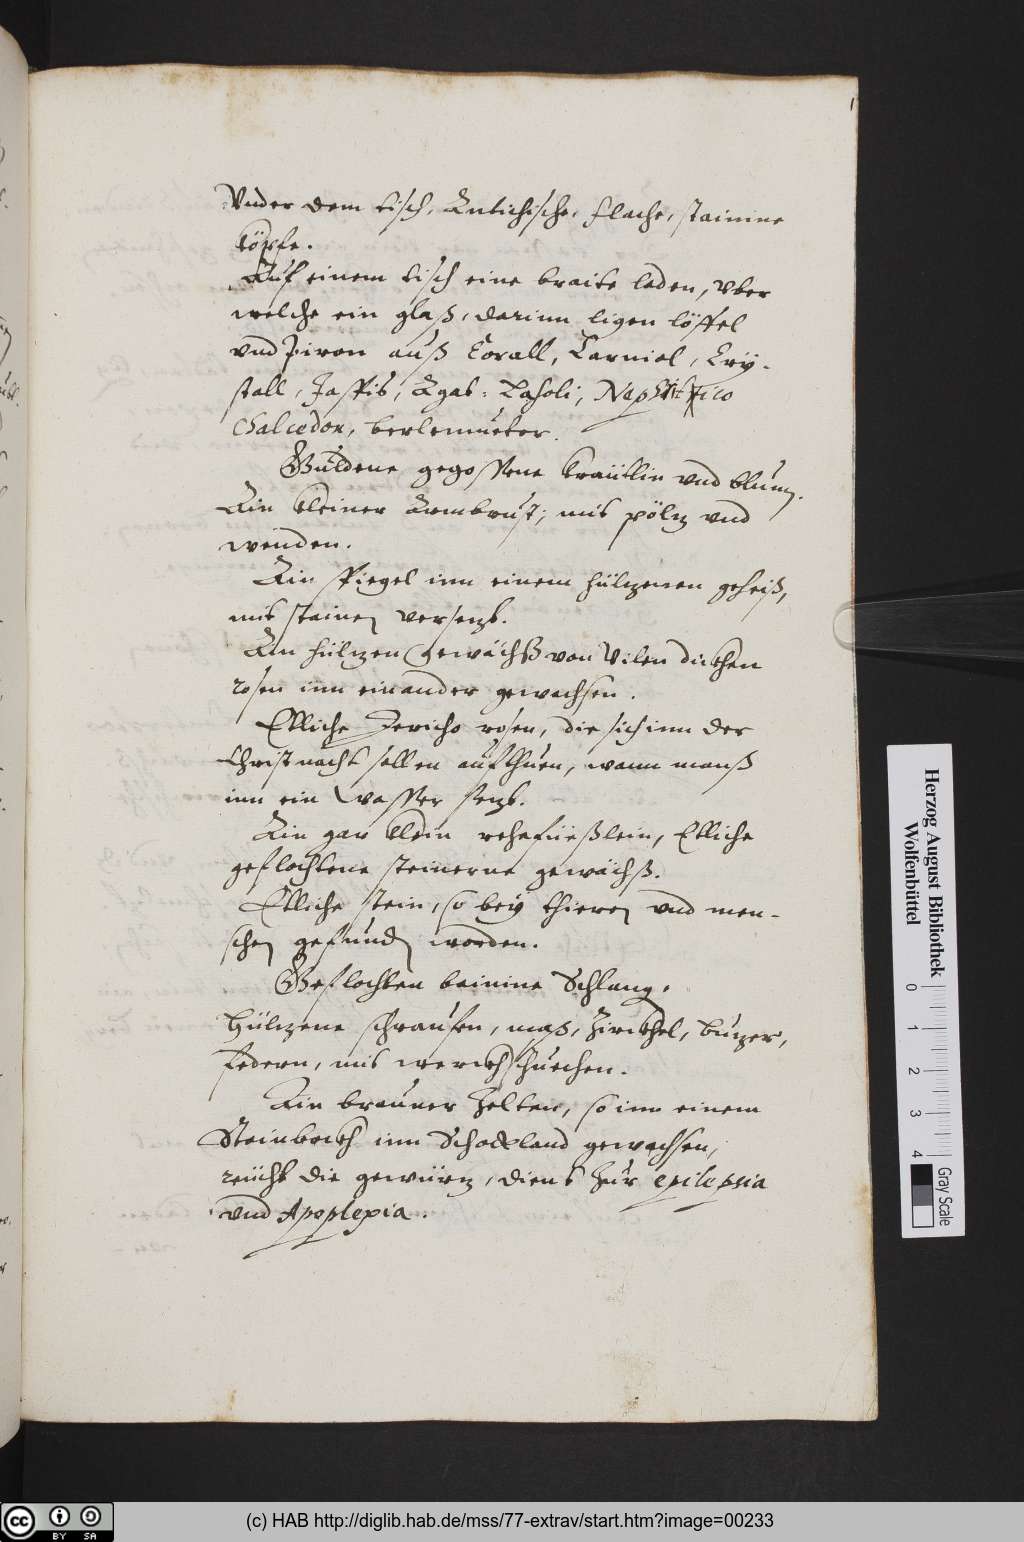 Vnder dem tisch, Antichische, flache, stainine
köpfe.
Auf einem tisch eine braite laden, vber
welche ein glaß, darinn ligen löffel
vnd Piron auß Corall, Carniol, Cry-
stall, Jaspis, Agat, Lasoli, Nephritico
Chalcedon, berlemuetter.
Guldene gegossene kräutlin vnd blumen.
Ain kleiner Armbrust, mit pöltz vnd
winden.
Ain spiegel inn einem hültzenen geheiß,
mit stainen versetzt.
Ain hültzen gewächß von vilen dickhen
rosen inn einander gewachsen.
Etliche Jericho rosen, die sich inn der
Christnacht sollen aufthuen, wann manß
inn ein wasser setzt.
Ain gar klein rehefüeßlein, Etliche
geflochtene steinerne gewächß.
Etliche stein, so bey thieren vnd men-
schen gefunden worden.
Geflochten beinine Schlang.
Hültzene schraufen, maß, Zirckhel, butzer,
federn, mit werckhschuechen.
Ain brauner Zelten, so inn einem
Steinbockh inn Schottland gewachsen,
reücht die gewürtz, dient zur epilepsia
vnd Apoplexia.
Herzog August Bibliothek
Wolfenbüttel
0 1 2 3 4
Gray Scale
(c) HAB http://diglib.hab.de/mss/77-extrav/start.htm?image=00233
cc BY SA